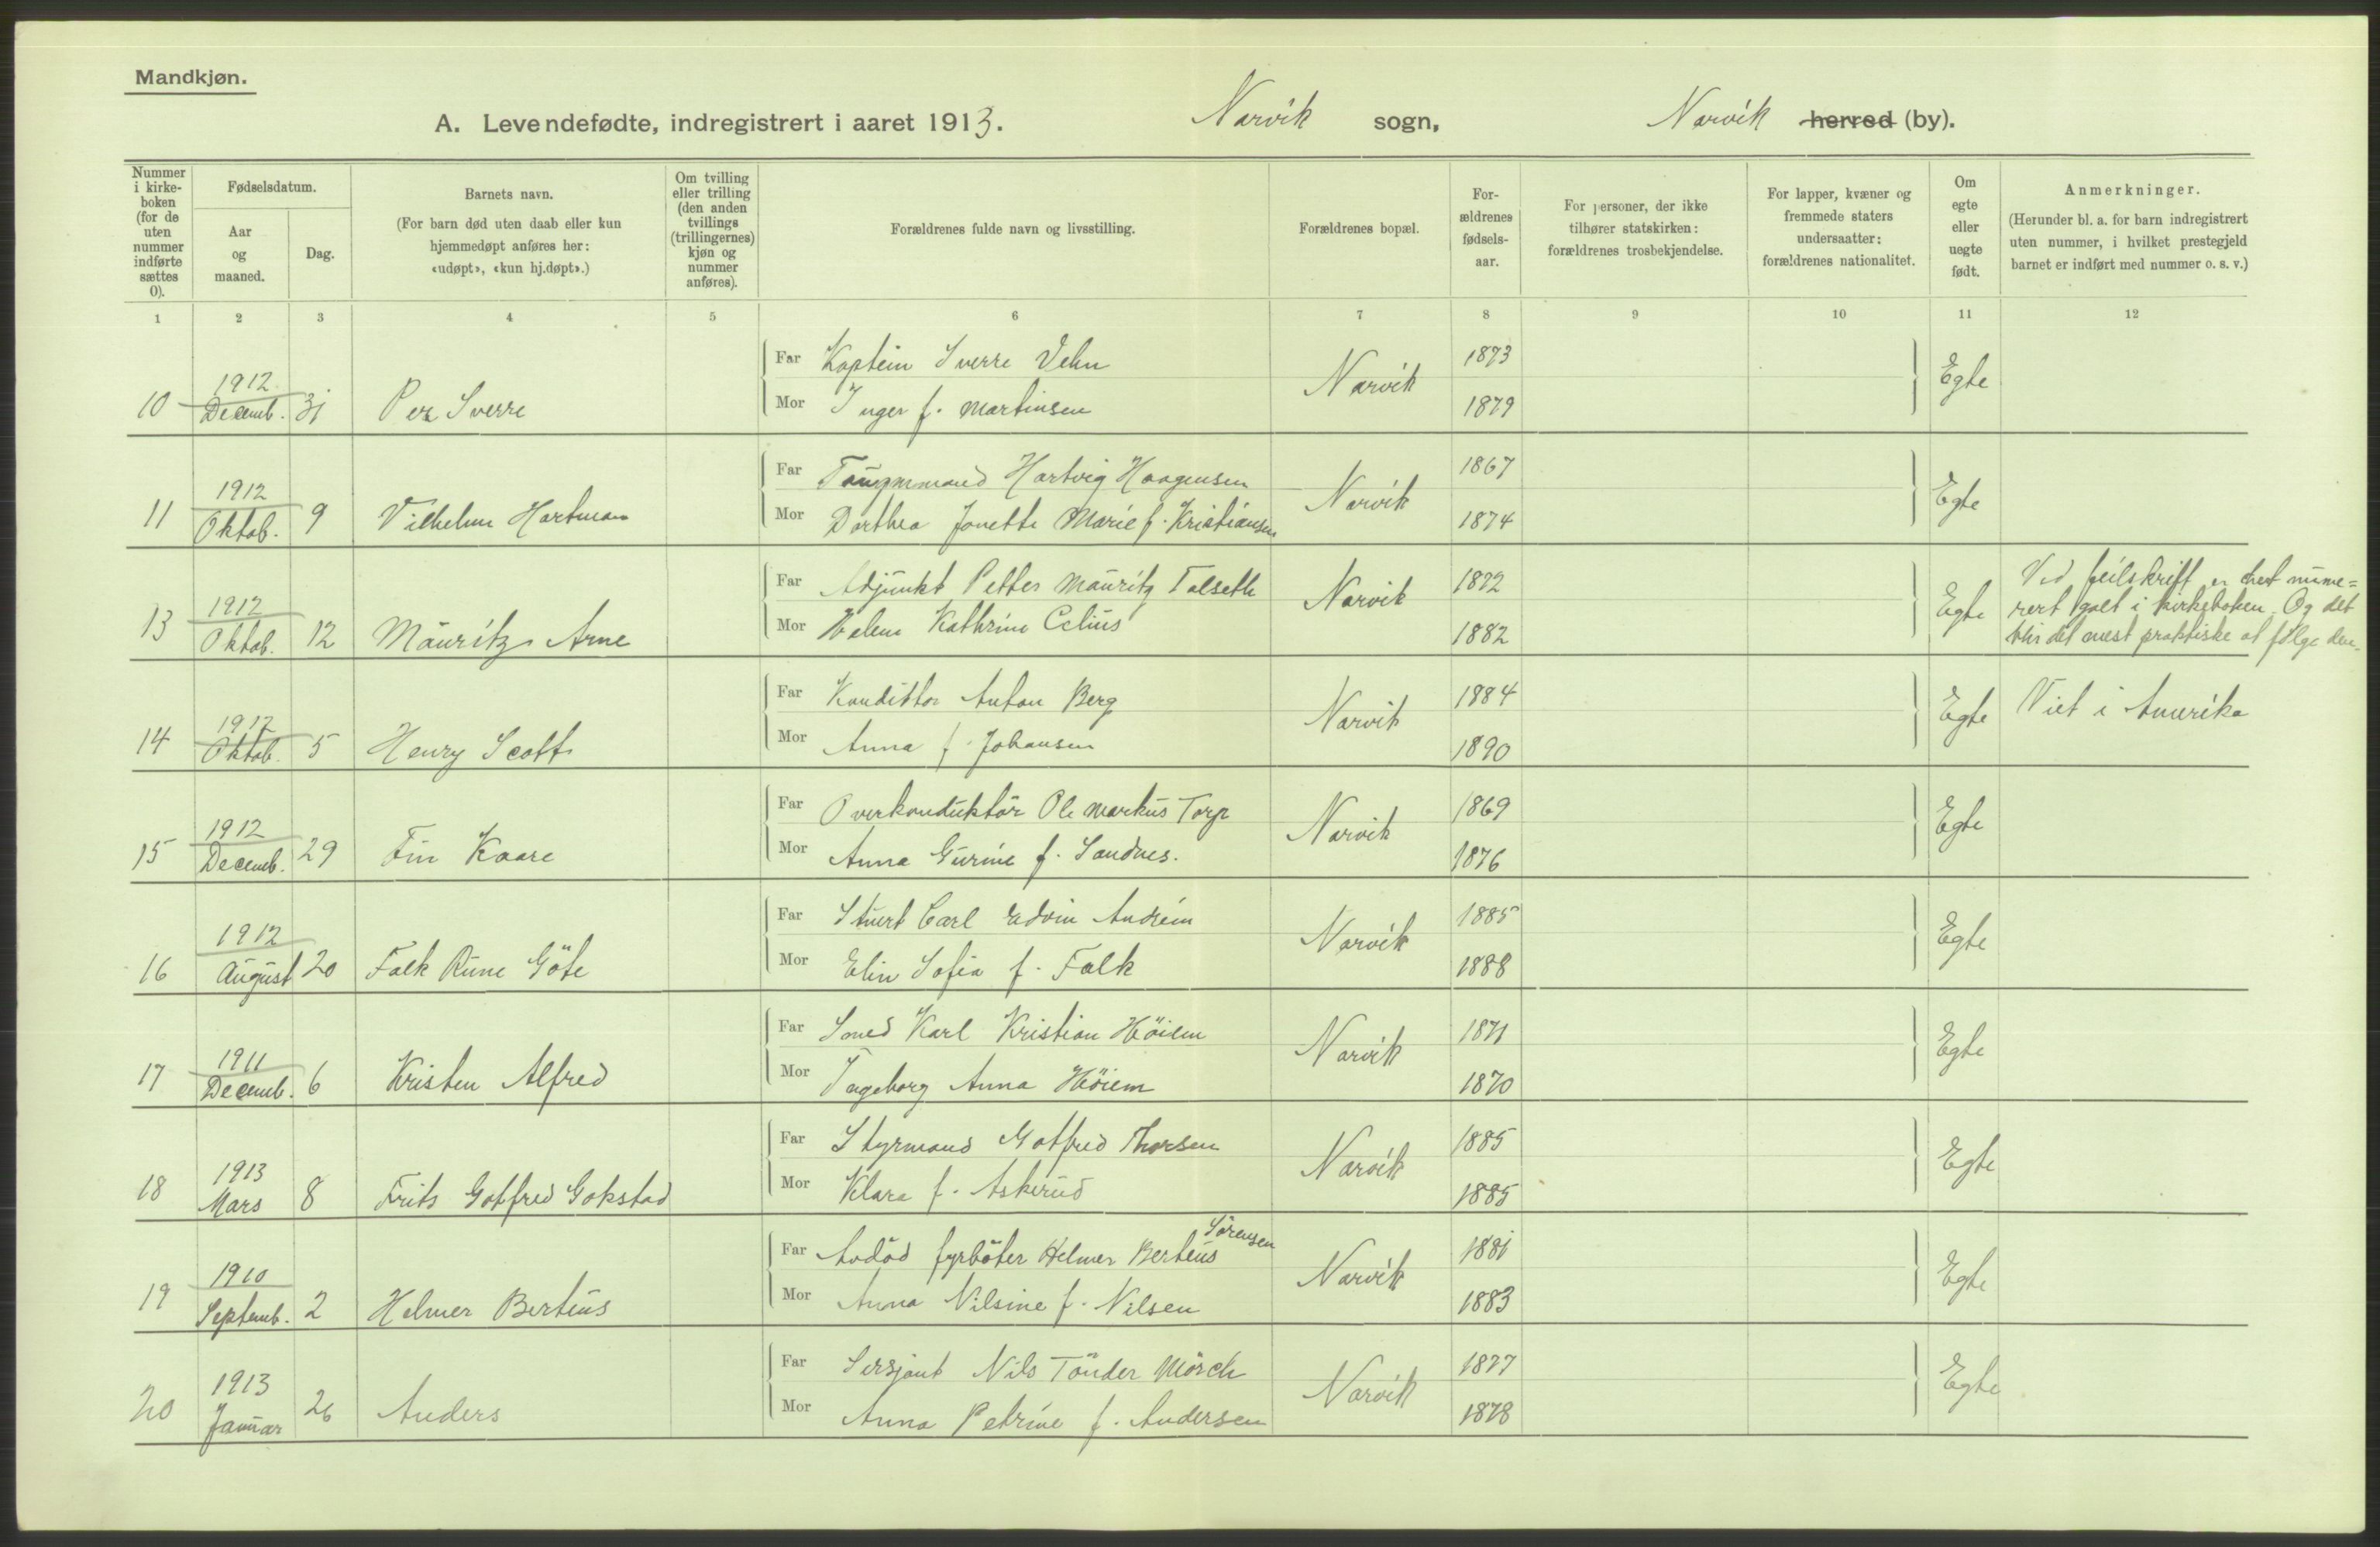 Mandkjøn.
A. Levendefødte, indregistrert i aaret 1913. Narvik sogn, Narvik herred (by).
Nummer i kirkeboken (for de uten nummer indførte sættes 0).
Fødselsdatum.
Aar og maaned.
Dag.
Barnets navn.
(For barn død uten daab eller kun hjemmedøpt anføres her: «udøpt», «kun hj.døpt».)
Om tvilling eller trilling (den anden tvillings (trillingernes) kjøn og nummer anføres).
Forældrenes fulde navn og livsstilling.
Forældrenes bopæl.
Forældrenes fødselsaar.
For personer, der ikke tilhører statskirken: forældrenes trosbekjendelse.
For lapper, kvæner og fremmede staters undersaatter: forældrenes nationalitet.
Om egte eller uegte født.
Anmerkninger.
(Herunder bl. a. for barn indregistrert uten nummer, i hvilket prestegjeld barnet er indført med nummer o. s. v.)
1 2 3 4 5 6 7 8 9 10 11 12
10 1912 Decemb. 31 Per Sverre
Far Kaptein Sverre Vehn 1873
Mor Inger f. Martinsen 1879
Narvik Egte
11 1912 Oktob. 9 Vilhelm Hartman
Far Hartvig Haagensen 1867
Mor Dorthea Jonette Marie f. Kristiansen 1874
Narvik Egte
13 1912 Oktob. 12 Mauritz Arne
Far Adjunkt Petter Mauritz Talseth 1872
Mor Helene Kathrine Celius 1882
Narvik Egte
Ved feilskrift er det nume=
rert galt i kirkeboken. Og det
blir det mest praktiske at følge den.
14 1912 Oktob. 5 Henry Scott
Far Konditor Anton Berg 1884
Mor Anna f. Johansen 1890
Narvik Egte Viet i Amerika
15 1912 Decemb. 29 Fin Kaare
Far Overkonduktør Ole Markus Torp 1869
Mor Anna Gurine f. Sandnes. 1876
Narvik Egte
16 1912 August 20 Falk Rune Göte
Far Stuert Carl Edvin Andrein 1885
Mor Elin Sofia f. Falk 1888
Narvik Egte
17 1911 Decemb. 6 Kristen Alfred
Far Smed Karl Kristian Höiem 1871
Mor Ingeborg Anna Höiem 1870
Narvik Egte
18 1913 Mars 8 Frits Gotfred Gokstad
Far Styrmand Gotfred Thorsen 1885
Mor Klara f. Askerud 1885
Narvik Egte
19 1910 Septemb. 2 Helmer Berteus
Far Avdöd fyrböter Helmer Berteus Sörensen 1881
Mor Anna Nilsine f. Nilsen 1883
Narvik Egte
20 1913 Januar 26 Anders
Far Sersjant Nils Tönder Mörch 1877
Mor Anna Petrine f. Andersen 1878
Narvik Egte